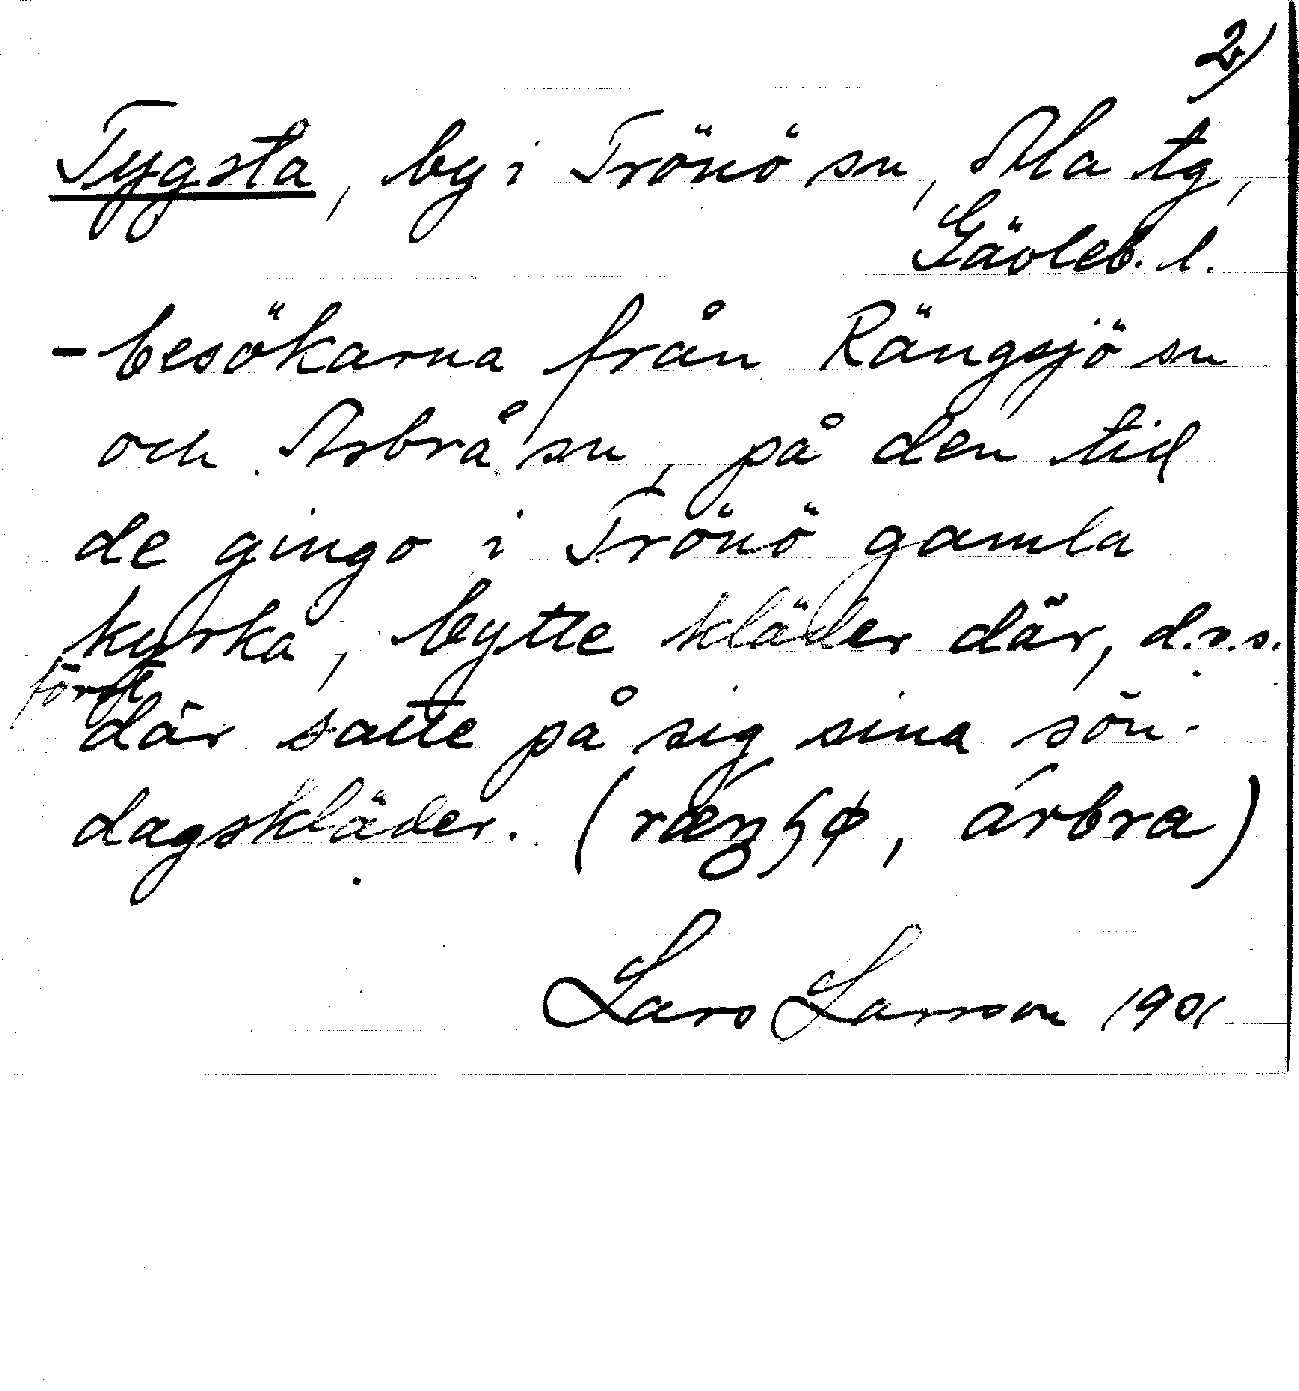 2)
Tygsta, by i Trönö sn, Ala tg,
Gävleb. l.
- besökarna från Rängsjö sn
och Arbrå sn, på den tid
de gingo i Trönö gamla
kyrka, bytte kläder där, d.v.s.
först
där satte på sig sina sön-
dagskläder. (, árbra)
Lars Larsson 1901